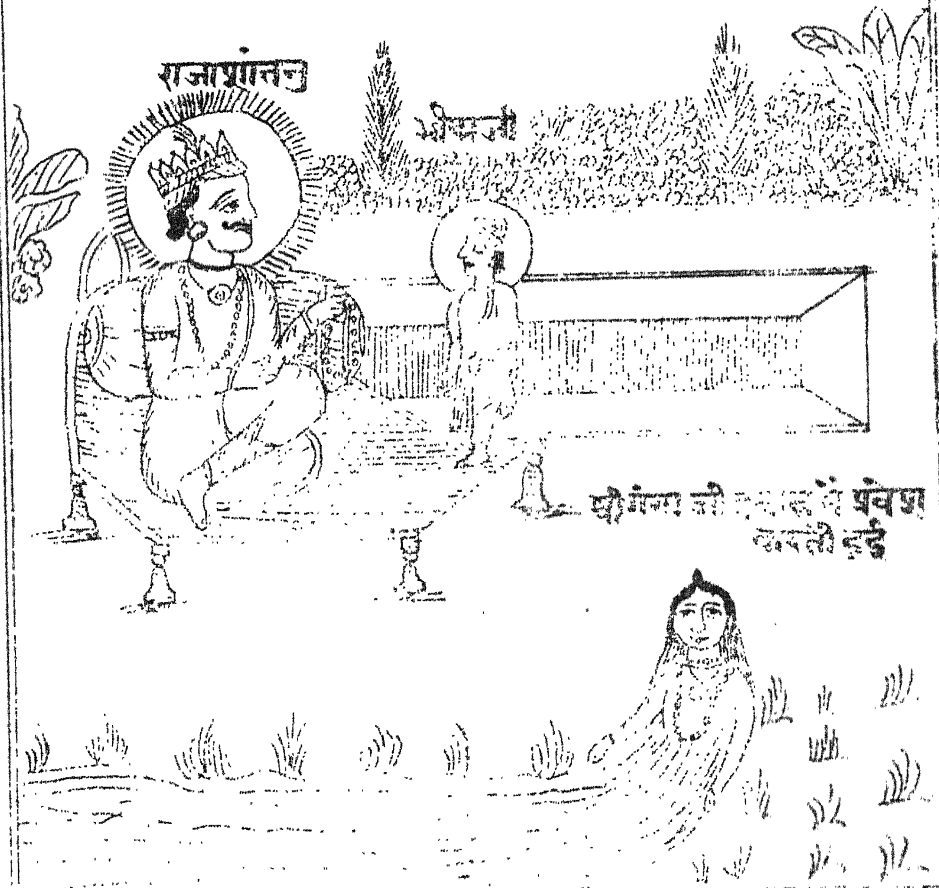 राजाशांतनु
भीष्मजी
श्रीगंगा जी प्रवाह में प्रवेश
करती हुई